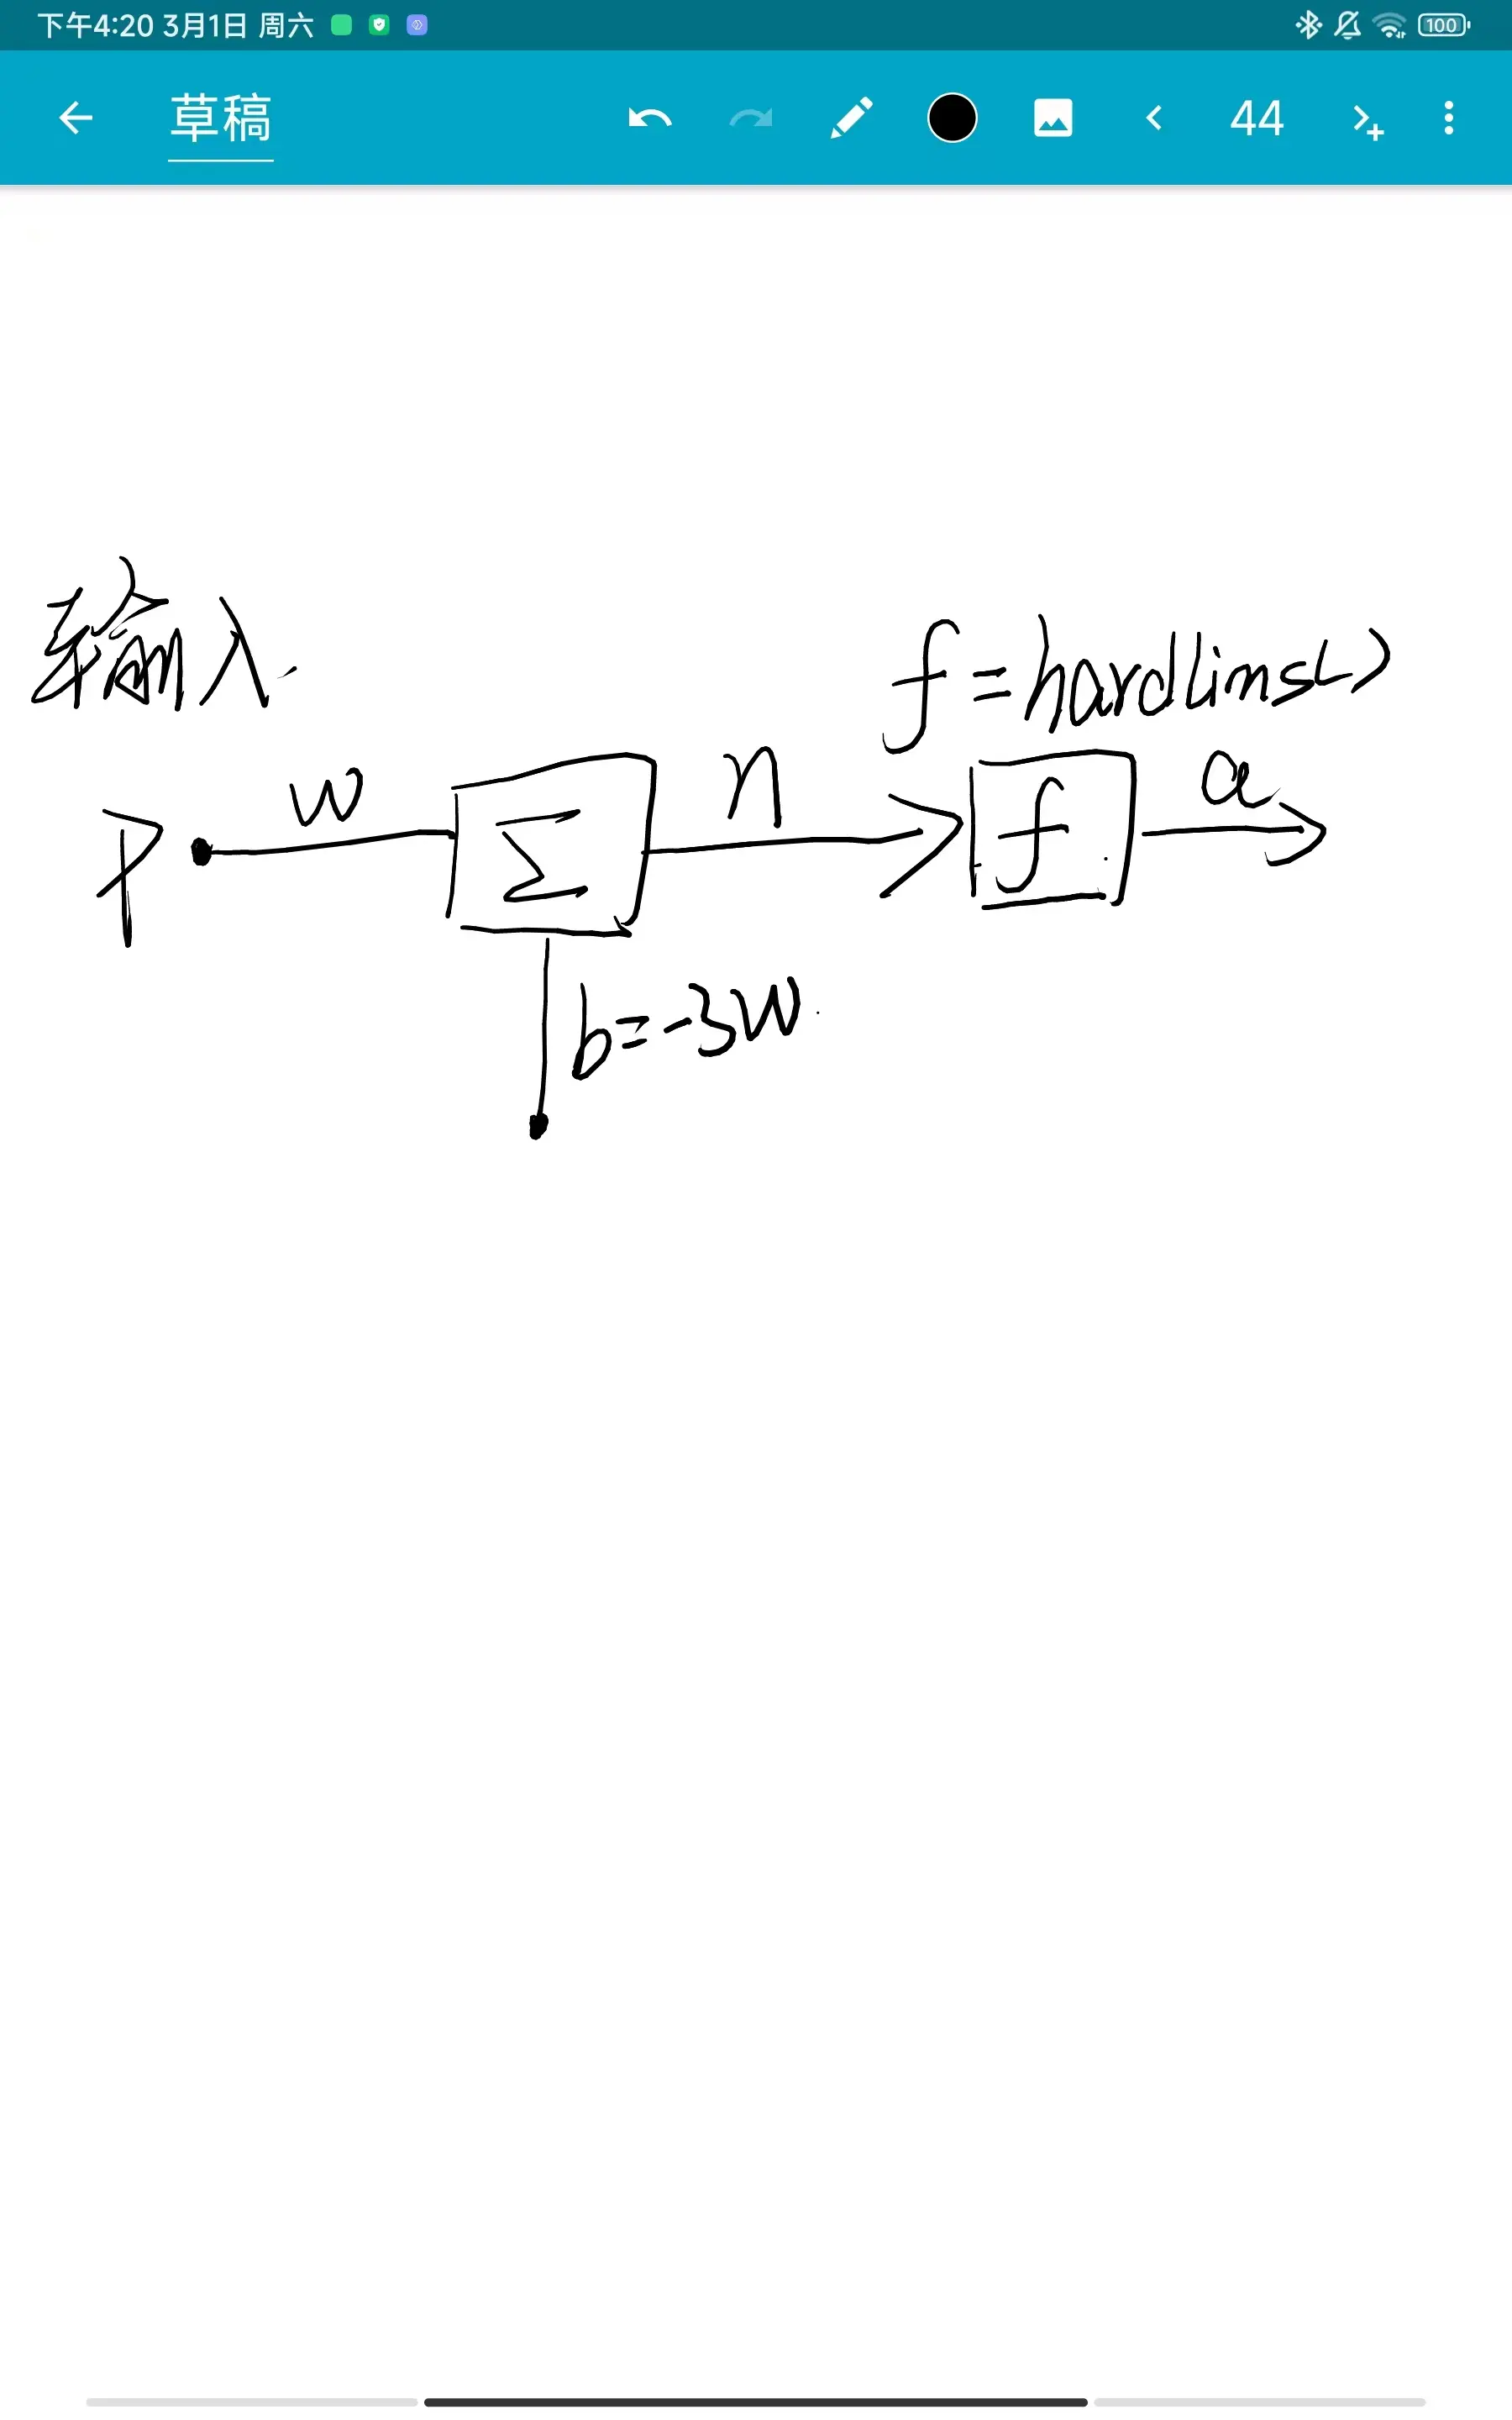 下午4:20 3月1日 周六
100
草稿
44
输入.
f=hardlims()
w
n
a
p
Σ
f
b=-3w.